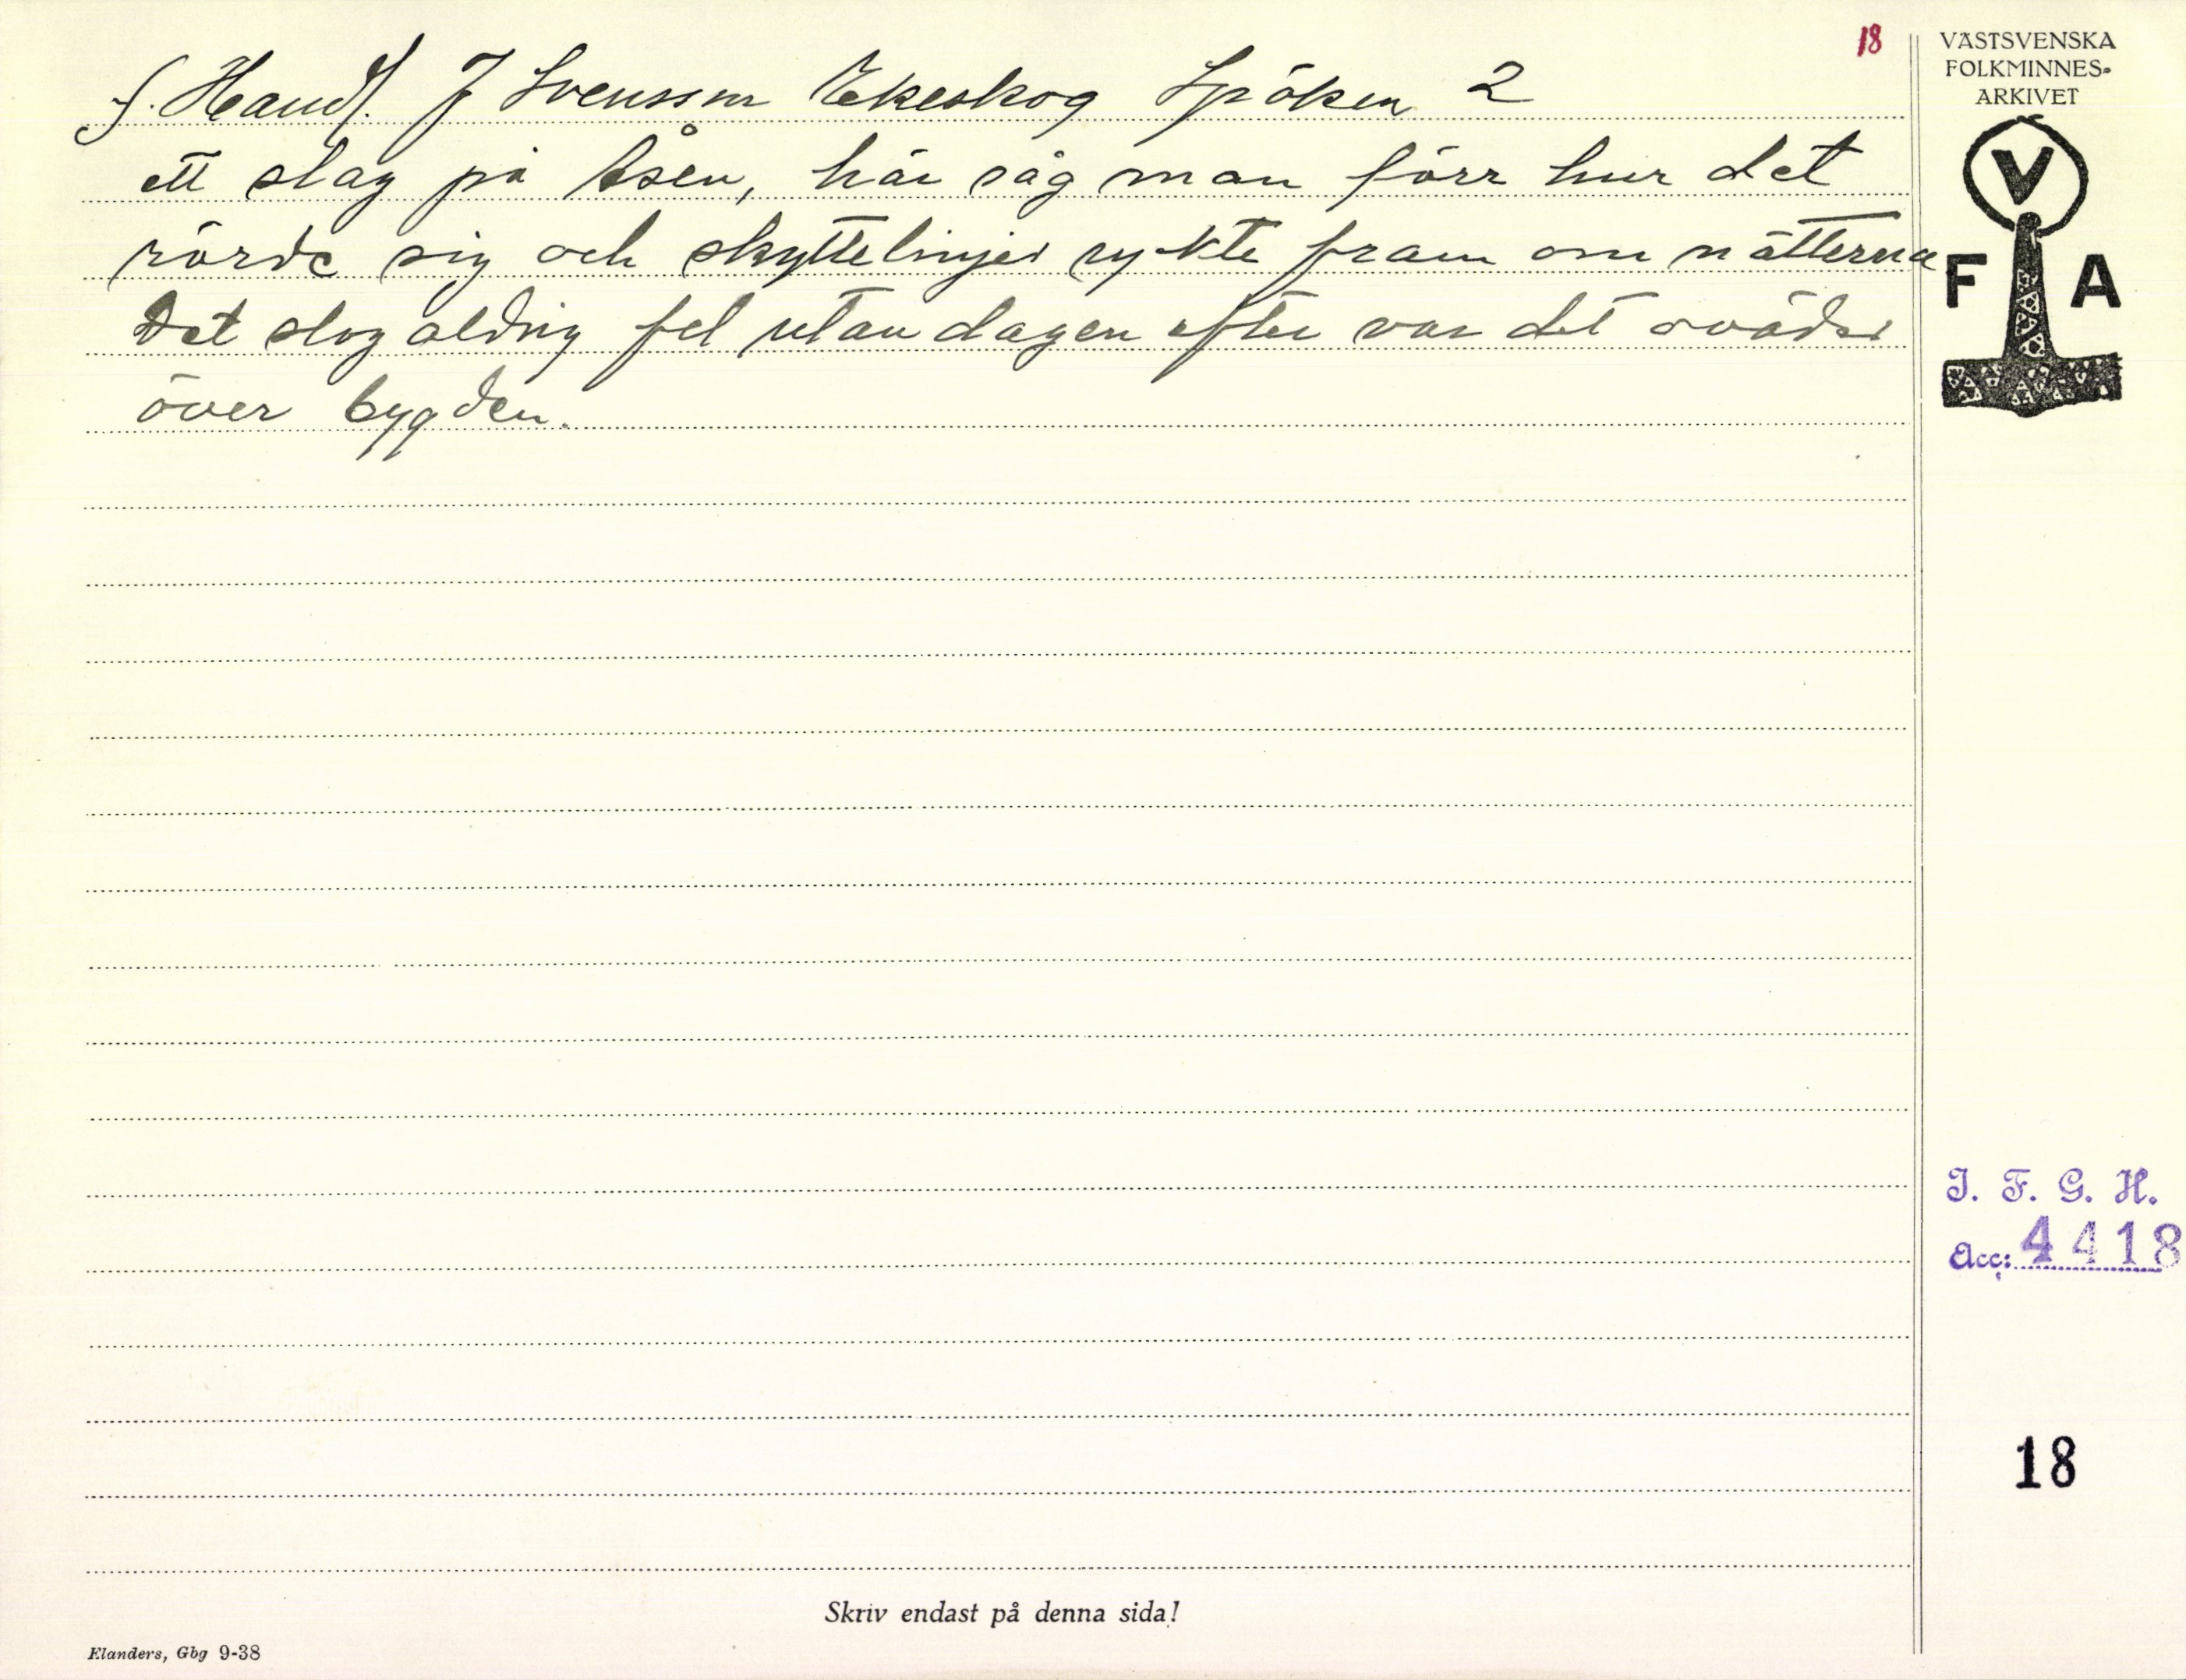 18
f. Handl. J Svensson Ekeskog Spöken 2
ett slag på Åsen, här såg man förr hur det
rörde sig och skyttelinjer ryckte fram om nätterna
Det slog aldrig fel utan dagen efter var det oväder
över bygden.
VÄSTSVENSKA
FOLKMINNES-
ARKIVET
V
F A
I. F. G. H.
Acc: 4418
18
Skriv endast på denna sida!
Elanders, Gbg 9-38